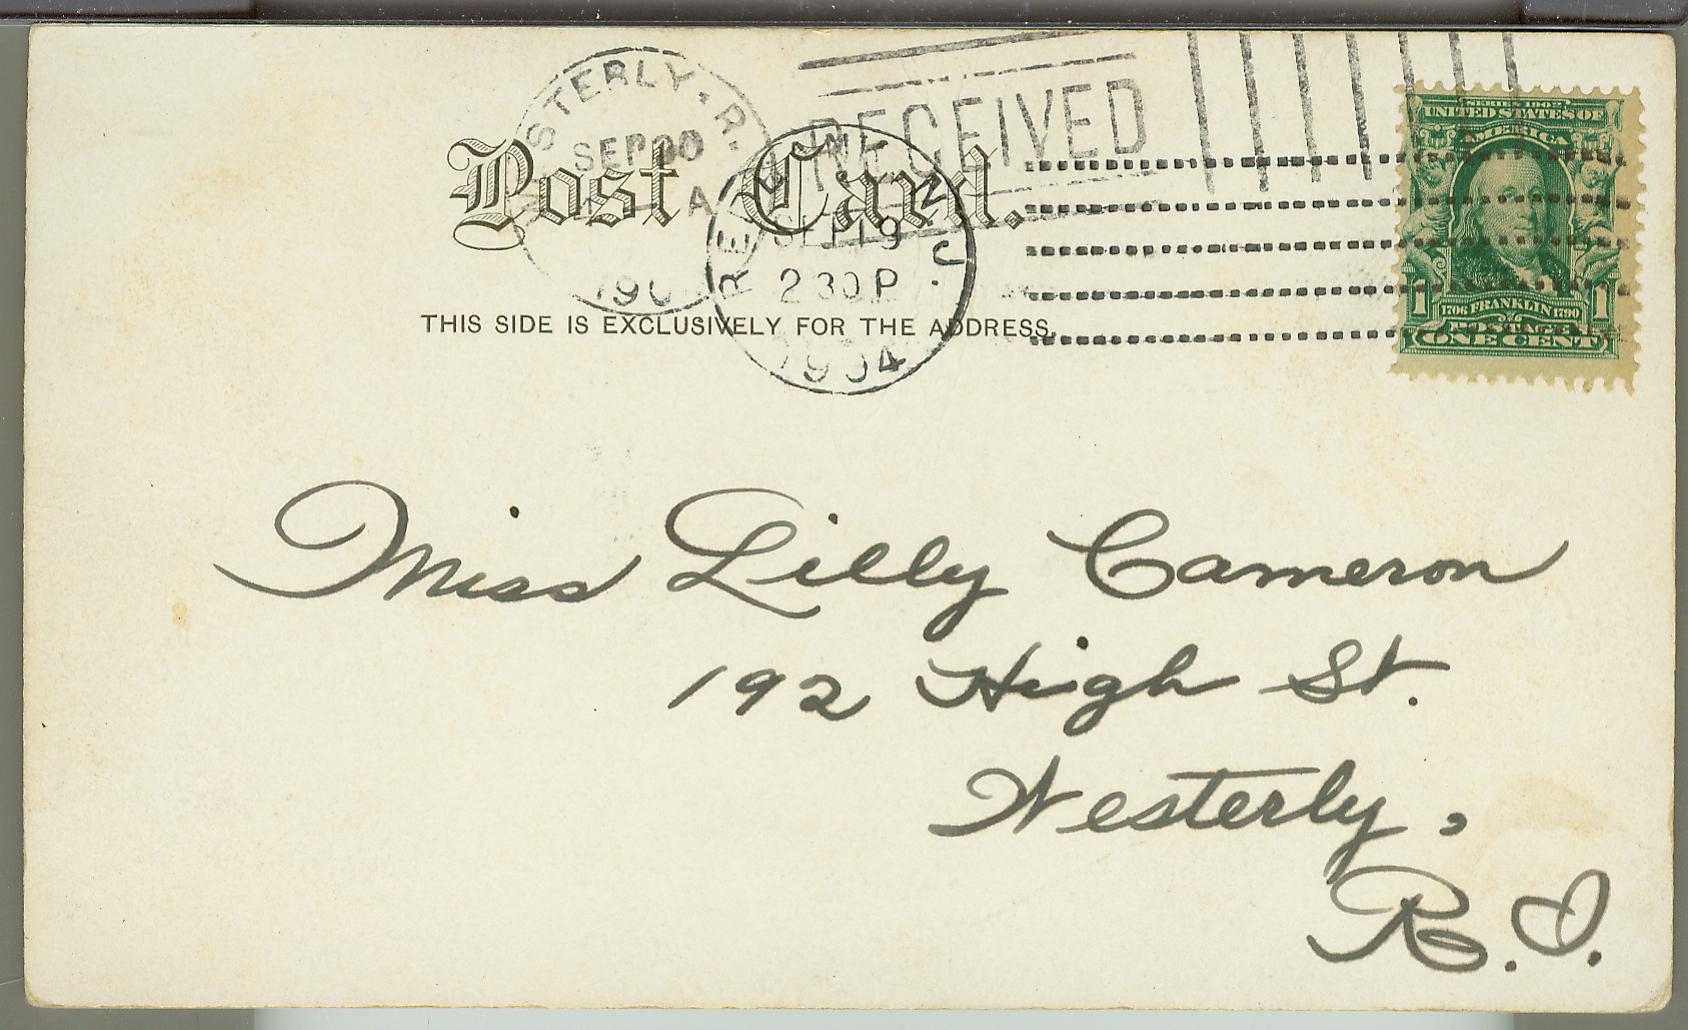 STERLY, R.
SEP 20
A
190
RECEIVED
N.J.
SEP 19
2 30 P
1904
Post Card.
THIS SIDE IS EXCLUSIVELY FOR THE ADDRESS.
SERIES 1902
UNITED STATES OF
AMERICA
1
1706 FRANKLIN 1790
1
POSTAGE
ONE CENT
Miss Lilly Cameron
192 High St.
Westerly,
R.I.